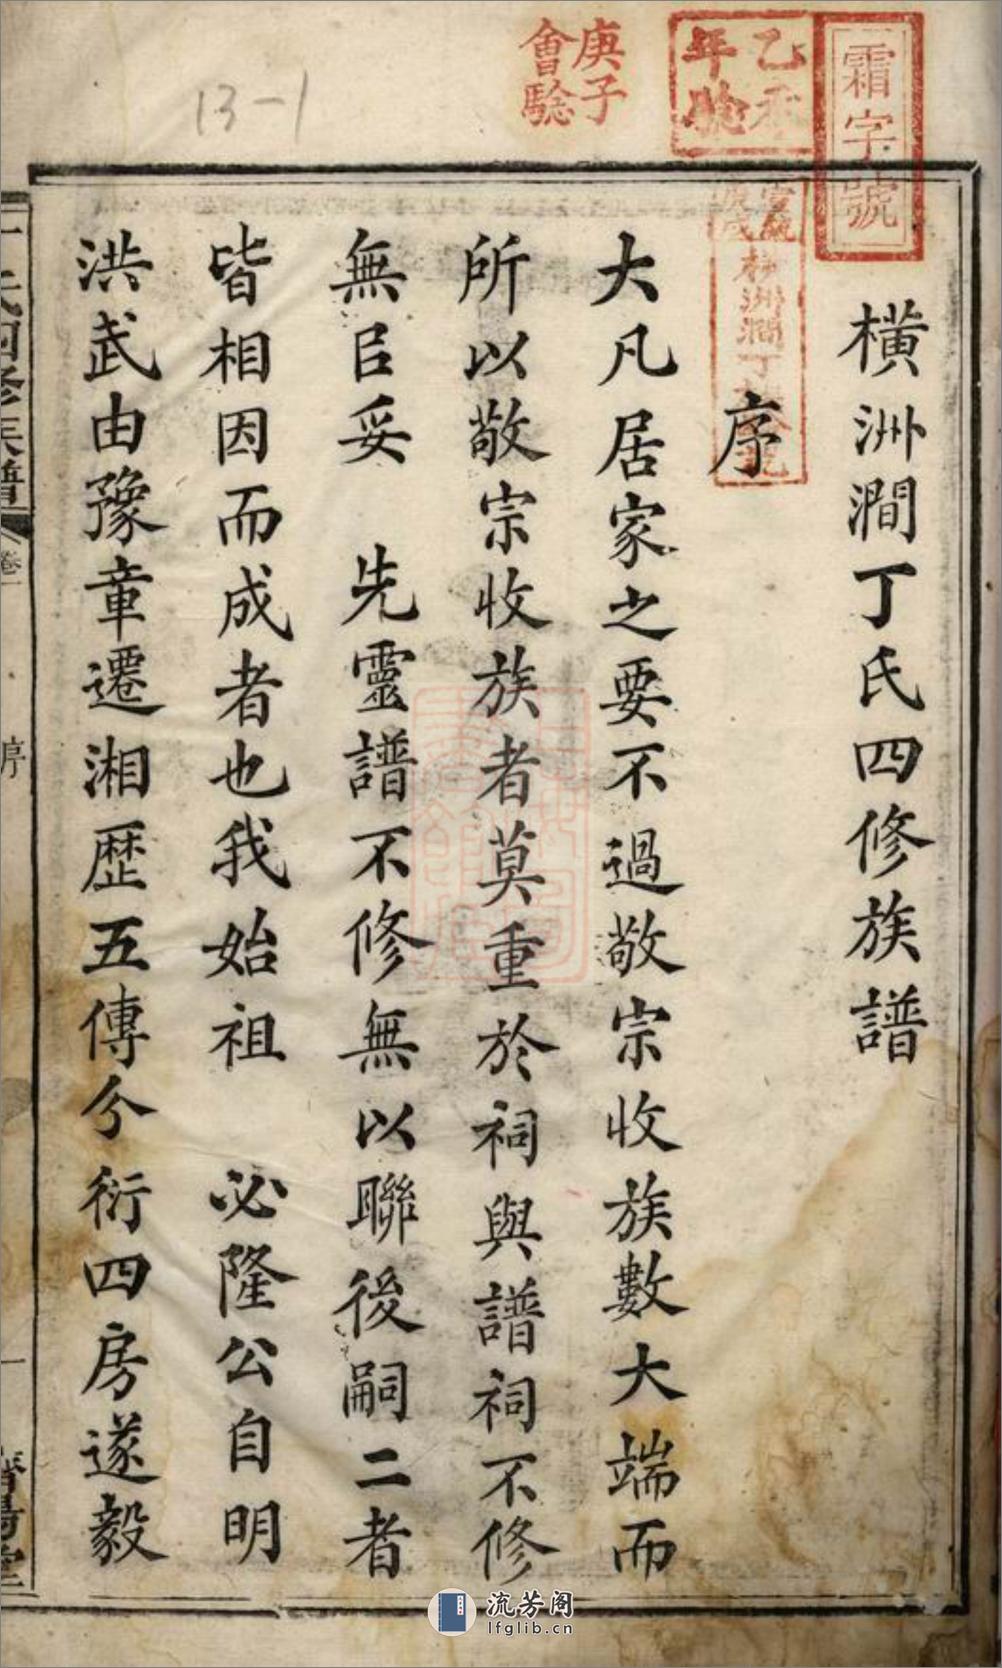 霜字號
乙未
年驗
庚子
會驗
13-1
橫洲澗丁氏四修族譜
序
大凡居家之要不過敬宗收族數大端而
所以敬宗收族者莫重於祠與譜祠不修
無㠯妥　先靈譜不修無以聯後嗣二者
皆相因而成者也我始祖　必隆公自明
洪武由豫章遷湘歷五傳分衍四房遂毅
丁氏四修族譜
卷一
序
一
濟陽堂
流芳阁
lfglib.cn